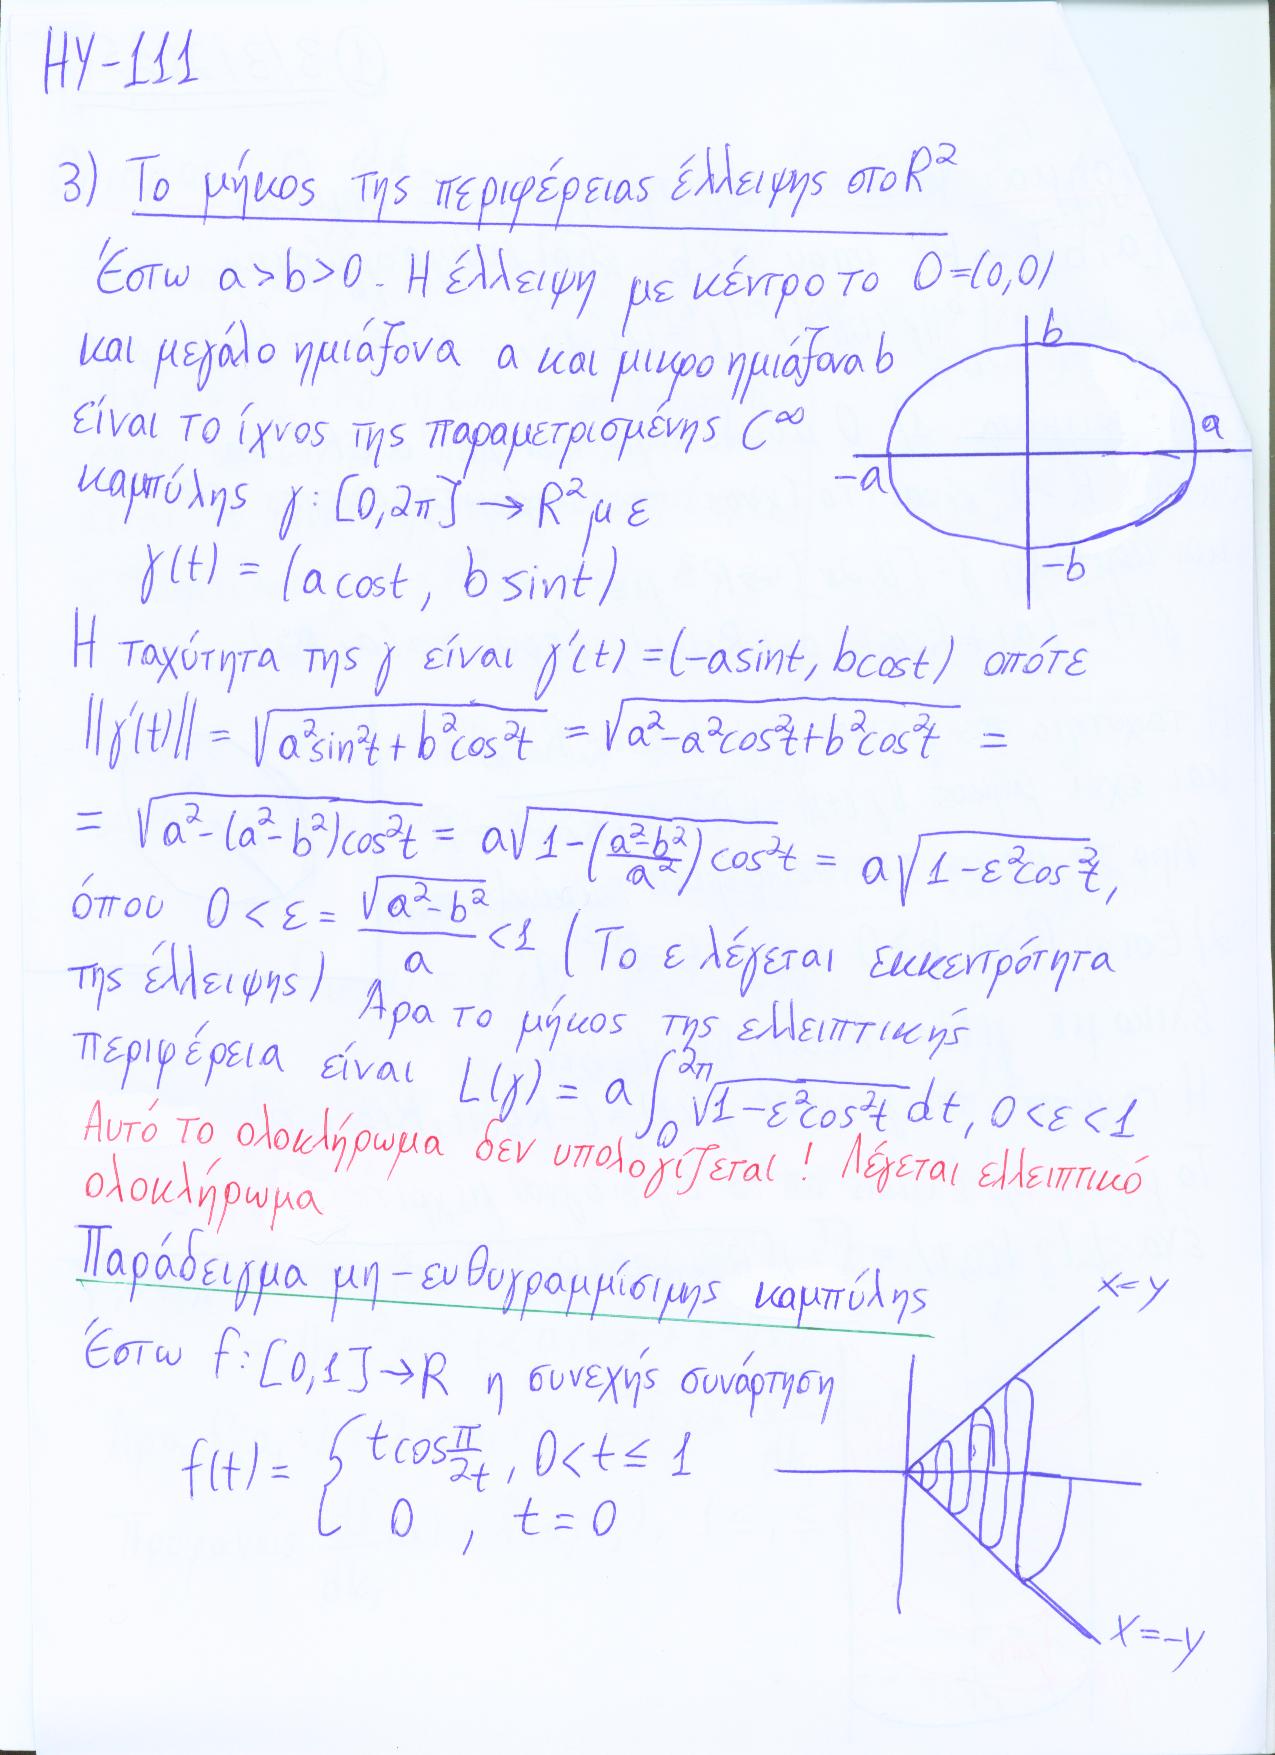 ΗΥ-111
3) Το μήκος της περιφέρειας έλλειψης στο R²
Έστω a>b>0. Η έλλειψη με κέντρο το O=(0,0)
και μεγάλο ημιάξονα a και μικρο ημιάξονα b
είναι το ίχνος της παραμετρισμένης C^∞
καμπύλης γ: [0,2π] → R² με
γ(t) = (a cost, b sint)
b
a
-a
-b
Η ταχύτητα της γ είναι γ'(t) = (-a sint, b cost) οπότε
||γ'(t)|| = √(a²sin²t + b²cos²t) = √(a²-a²cos²t+b²cos²t) =
= √(a²-(a²-b²)cos²t) = a√(1-((a²-b²)/a²)cos²t) = a√(1-ε²cos²t),
όπου 0 < ε = √(a²-b²)/a < 1 (Το ε λέγεται εκκεντρότητα
της έλλειψης) Άρα το μήκος της ελλειπτικής
περιφέρεια είναι L(γ) = a∫₀^{2π} √(1-ε²cos²t) dt, 0<ε<1
Αυτό το ολοκλήρωμα δεν υπολογίζεται! Λέγεται ελλειπτικό
ολοκλήρωμα
Παράδειγμα μη-ευθυγραμμίσιμης καμπύλης
Έστω f: [0,1] → R η συνεχής συνάρτηση
f(t) = { t cos π/2t, 0<t≤1
0 , t=0
x=y
x=-y